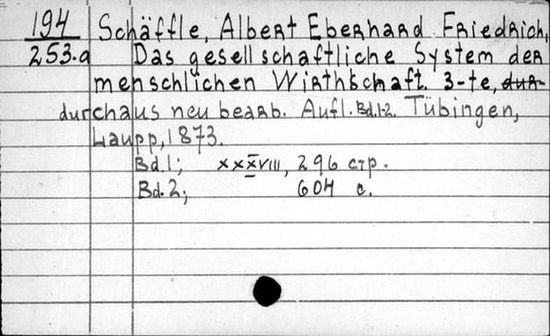 194 Schäffle, Albert Eberhard Friedrich,
253.a Das gesellschaftliche System der
menschlichen Wirthschaft. 3-te, dur-
durchaus neu bearb. Aufl. Bd.1-2. Tübingen,
Laupp, 1873.
Bd.1; XXXVIII, 296 стр.
Bd.2; 604 с.